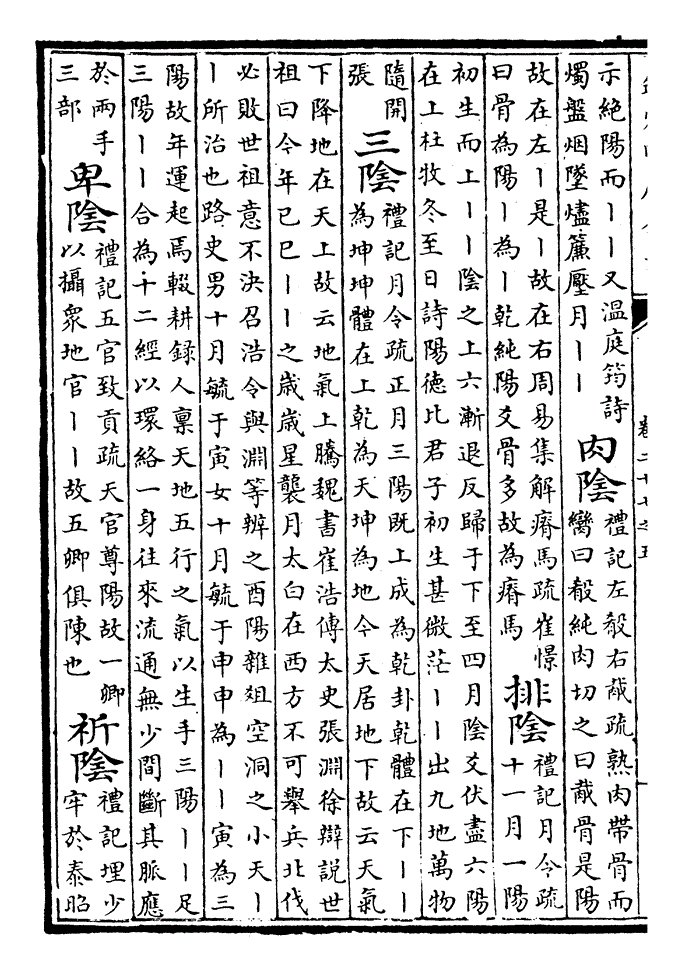 示絶陽而丨丨又溫庭筠詩
燭盤烟墜燼簾壓月丨丨
肉陰
禮記左殽右胾疏熟肉帶骨而
臠曰殽純肉切之曰胾骨是陽
故在左丨是丨故在右周易集解瘠馬疏崔憬
曰骨為陽丨為丨乾純陽爻骨多故為瘠馬
排陰
禮記月令疏
十一月一陽
初生而上丨丨陰之上六漸退反歸于下至四月陰爻伏盡六陽
在上杜牧冬至日詩陽德比君子初生甚微茫丨丨出九地萬物
隨開
張
三陰
禮記月令疏正月三陽既上成為乾卦乾體在下丨丨
為坤坤體在上乾為天坤為地今天居地下故云天氣
下降地在天上故云地氣上騰魏書崔浩傳太史張淵徐辯説世
祖曰今年已巳丨丨之歲歲星襲月太白在西方不可舉兵北伐
必敗世祖意不決召浩令與淵等辨之酉陽雜俎空洞之小天丨
丨所治也路史男十月毓于寅女十月毓于申申為丨丨寅為三
陽故年運起焉輟耕錄人稟天地五行之氣以生手三陽丨丨足
三陽丨丨合為十二經以環絡一身往來流通無少間斷其脈應
於兩手
三部
卑陰
禮記五官致貢疏天官尊陽故一卿
以攝衆地官丨丨故五卿俱陳也
祈陰
禮記埋少
牢於泰昭
卷二十七之五